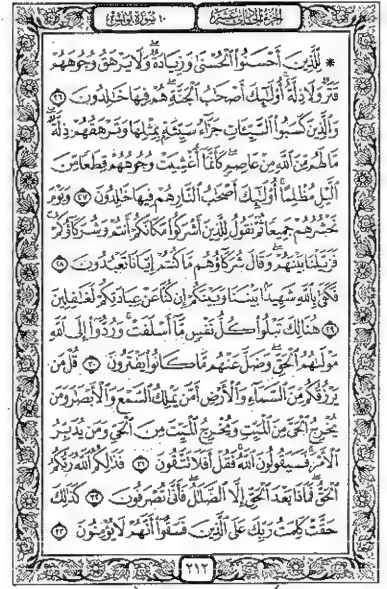 الجزء الحادي عشر ١٠ سورة يونس
* لِّلَّذِينَ أَحْسَنُوا۟ ٱلْحُسْنَىٰ وَزِيَادَةٌ ۖ وَلَا يَرْهَقُ وُجُوهَهُمْ
قَتَرٌ وَلَا ذِلَّةٌ ۚ أُو۟لَٰٓئِكَ أَصْحَٰبُ ٱلْجَنَّةِ ۖ هُمْ فِيهَا خَٰلِدُونَ ٢٦
وَٱلَّذِينَ كَسَبُوا۟ ٱلسَّيِّـَٔاتِ جَزَآءُ سَيِّئَةٍۭ بِمِثْلِهَا وَتَرْهَقُهُمْ ذِلَّةٌ ۖ
مَّا لَهُم مِّنَ ٱللَّهِ مِنْ عَاصِمٍ ۖ كَأَنَّمَآ أُغْشِيَتْ وُجُوهُهُمْ قِطَعًا مِّنَ
ٱلَّيْلِ مُظْلِمًا ۚ أُو۟لَٰٓئِكَ أَصْحَٰبُ ٱلنَّارِ ۖ هُمْ فِيهَا خَٰلِدُونَ ٢٧ وَيَوْمَ
نَحْشُرُهُمْ جَمِيعًا ثُمَّ نَقُولُ لِلَّذِينَ أَشْرَكُوا۟ مَكَانَكُمْ أَنتُمْ وَشُرَكَآؤُكُمْ ۚ
فَزَيَّلْنَا بَيْنَهُمْ ۖ وَقَالَ شُرَكَآؤُهُم مَّا كُنتُمْ إِيَّانَا تَعْبُدُونَ ٢٨
فَكَفَىٰ بِٱللَّهِ شَهِيدًۢا بَيْنَنَا وَبَيْنَكُمْ إِن كُنَّا عَنْ عِبَادَتِكُمْ لَغَٰفِلِينَ
٢٩ هُنَالِكَ تَبْلُوا۟ كُلُّ نَفْسٍ مَّآ أَسْلَفَتْ ۚ وَرُدُّوٓا۟ إِلَى ٱللَّهِ
مَوْلَىٰهُمُ ٱلْحَقِّ ۖ وَضَلَّ عَنْهُم مَّا كَانُوا۟ يَفْتَرُونَ ٣٠ قُلْ مَن
يَرْزُقُكُم مِّنَ ٱلسَّمَآءِ وَٱلْأَرْضِ أَمَّن يَمْلِكُ ٱلسَّمْعَ وَٱلْأَبْصَٰرَ وَمَن
يُخْرِجُ ٱلْحَىَّ مِنَ ٱلْمَيِّتِ وَيُخْرِجُ ٱلْمَيِّتَ مِنَ ٱلْحَىِّ وَمَن يُدَبِّرُ
ٱلْأَمْرَ ۚ فَسَيَقُولُونَ ٱللَّهُ ۚ فَقُلْ أَفَلَا تَتَّقُونَ ٣١ فَذَٰلِكُمُ ٱللَّهُ رَبُّكُمُ
ٱلْحَقُّ ۖ فَمَاذَا بَعْدَ ٱلْحَقِّ إِلَّا ٱلضَّلَٰلُ ۖ فَأَنَّىٰ تُصْرَفُونَ ٣٢ كَذَٰلِكَ
حَقَّتْ كَلِمَتُ رَبِّكَ عَلَى ٱلَّذِينَ فَسَقُوٓا۟ أَنَّهُمْ لَا يُؤْمِنُونَ ٣٣
٢١٢